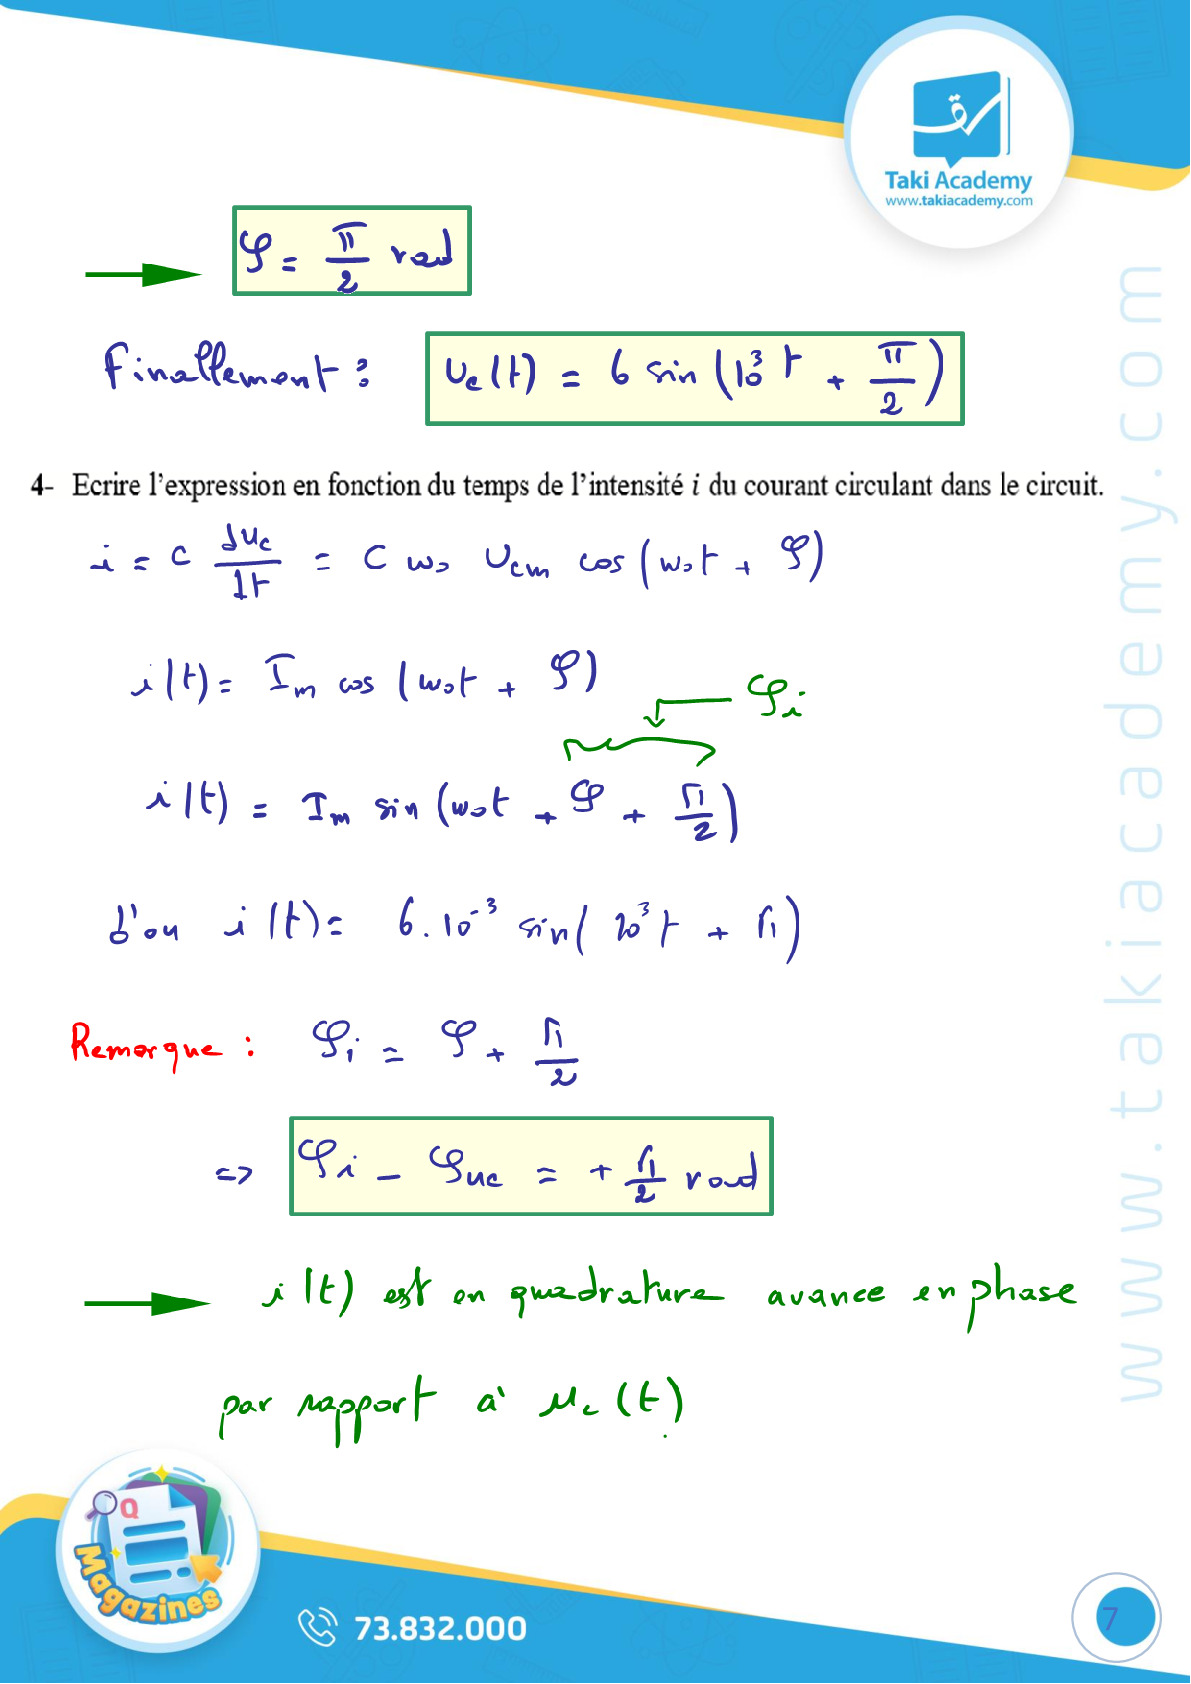 Taki Academy
www.takiacademy.com
φ = π/2 rad
Finallement : uc(t) = 6 sin(10³t + π/2)
4- Ecrire l'expression en fonction du temps de l'intensité i du courant circulant dans le circuit.
i = C duc/dt = C ω₀ Ucm cos(ω₀t + φ)
i(t) = Im cos(ω₀t + φ)
φi
i(t) = Im sin(ω₀t + φ + π/2)
d'ou i(t) = 6.10⁻³ sin(10³t + π)
Remarque : φi = φ + π/2
=> φi - φuc = + π/2 rad
i(t) est en quadrature avance en phase
par rapport à uc(t)
www.takiacademy.com
Q
Magazines
73.832.000
7